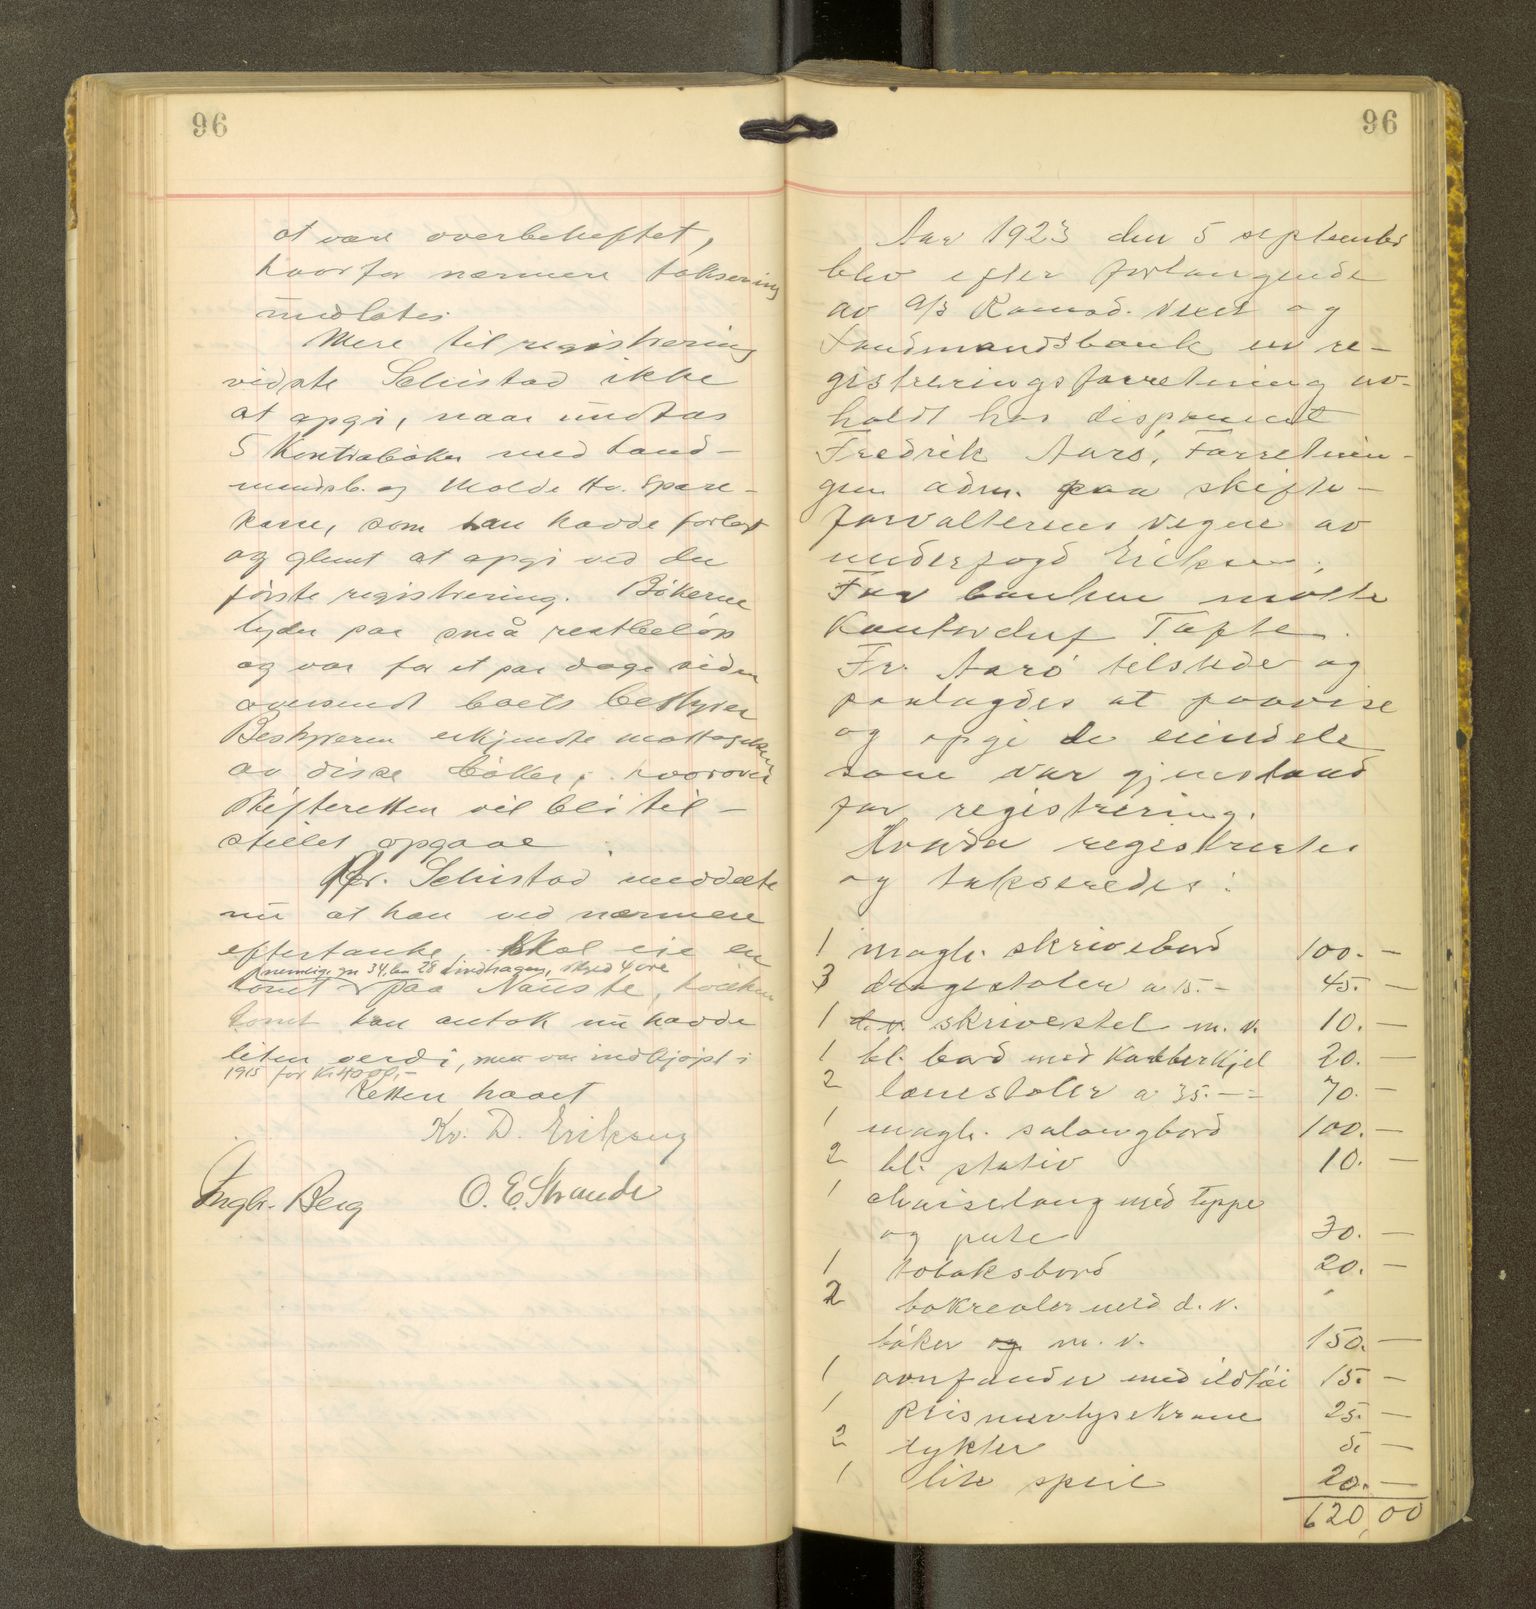 96
at være overbeheftet,
hvorfor nærmere taksering
undlates.
Mere til registrering
vidste Schistad ikke
at opgi, naar undtas
5 Kontrabøker med Land-
mandsb. og Molde Hv. Spare-
kasse, som han havde forlagt
og glemt at opgi ved den
første registrering. Bøkerne
lyder paa små restbeløp
og var for et par dage siden
oversendt boets bestyrer
Bestyreren erkjendte mottagelsen
av disse bøker, hvorover
skifteretten vil bli til-
stillet opgave.
Hr. Schistad meddelte
nu at han ved nærmere
eftertanke skal eie en
nemlig gn 34, bn 28 Lindhagen, skyld 4 øre
tomt paa Nauste, hvilken
tomt han antok nu havde
liten verdi, men var indkjøpt i
1915 for Kr. 4000,-
Retten hævet
Kr. D. Eriksen
Ingbr. Berg O. E. Strande
96
Aar 1923 den 5 september
blev efter forlangende
av A/S Romsd. Vexel og
Landmandsbank en re-
gistreringsforretning av-
holdt hos disponent
Fredrik Aarø, Forretnin-
gen adm. paa skifte-
forvalterens vegne av
underfogd Eriksen.
For banken møtte
Kontorchef Tofte.
Fr. Aarø tilstede og
paalagdes at paavise
og opgi de eiendele
som var gjenstand
for registrering.
Hvorda registrertes
og takseredes:
1 magh. skrivebord 100.-
3 dragestoler a 15.- 45.-
1 skrivestel m. v. 10.-
1 bl. bord med Kobberkjel 20.-
2 lænestoler a 35.- = 70.-
1 magh. salongbord 100.-
2 bl. stativ 10.-
1 chaiselong med teppe
og pute 30.-
1 tobaksbord 20.-
2 bokreoler med d. v.
bøker og m. v. 150.-
1 ovnfander med ildtøi 15.-
1 prismerlysekrone 25.-
2 lykter 5.-
1 lite speil 20.-
620,00